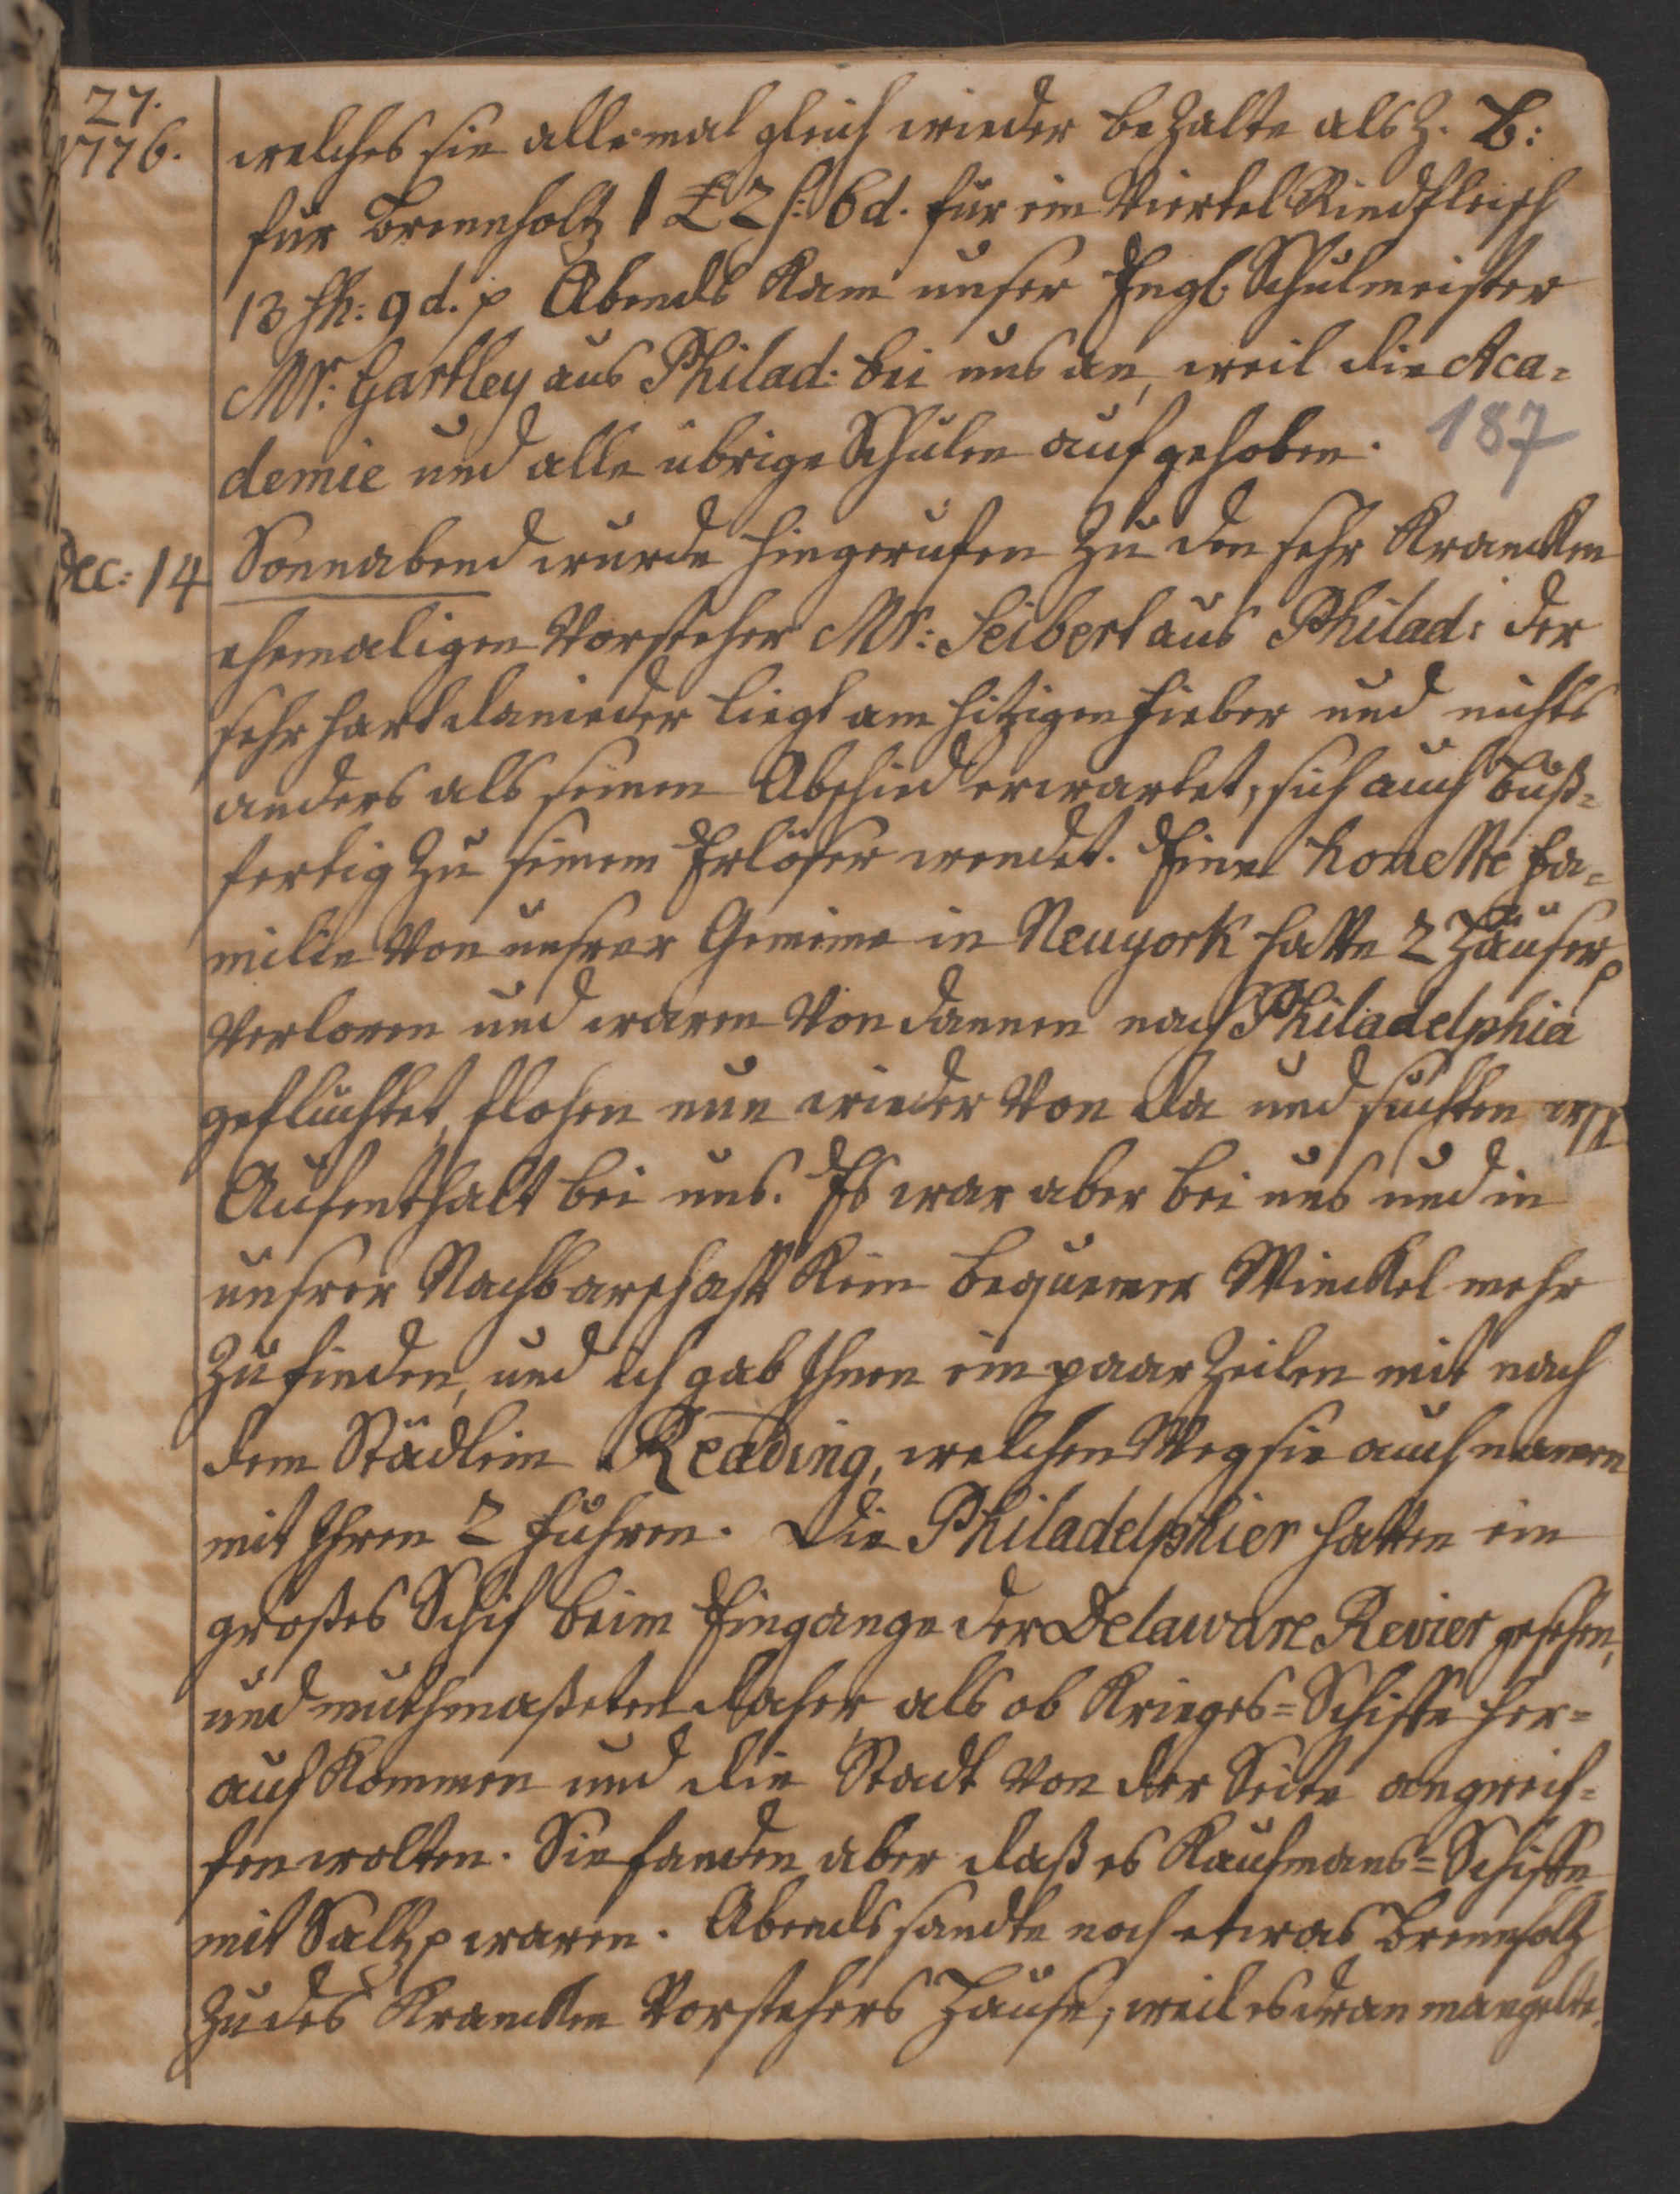 27.
1776.
welches sie allemal gleich wieder bezalte als z. B:
für Brennholtz 1 £ 2 s: 6 d. für ein Viertel Rindfleisch
13 sh: 9 d. p Abends kam unser Engl. Schulmeister
Mr: Gartley aus Philad: bei uns an, weil die Aca-
demie und alle übrige Schulen aufgehoben.
187
Dec: 14
Sonnabend wurde hingerufen zu den sehr krancken
ehemaligen Vorsteher Mr: Seibert aus Philad: der
sehr hart danieder liegt am hitzigen Fieber und nichts
anders als seinen Abschied erwartet, sich auch buß-
fertig zu seinem Erlöser wendet. Eine honette Fa-
milie von unsrer Gemeine in Neuyork hatte 2 Häuser p
verloren und waren von dannen nach Philadelphia
geflüchtet, flohen nun wieder von da und suchten
Aufenthalt bei uns. Es war aber bei uns und in
unsrer Nachbarschaft kein bequemer Winckel mehr
zu finden, und ich gab Ihnen ein paar Zeilen mit nach
dem Städlein Reading, welchen Weg sie auch namen
mit Ihren 2 Fuhren. Die Philadelphier hatten ein
großes Schif beim Eingange der Delaware Revier gesehen,
und muthmaßeten daher als ob Krieges-Schiffe her-
auf kommen und die Stadt von der Seite angreif-
fen wolten. Sie fanden aber daß es Kaufmans-Schiffe
mit Saltz p waren. Abends sandte noch etwas Brennholtz
zu des krancken Vorstehers Hause, weil es dran mangelte.